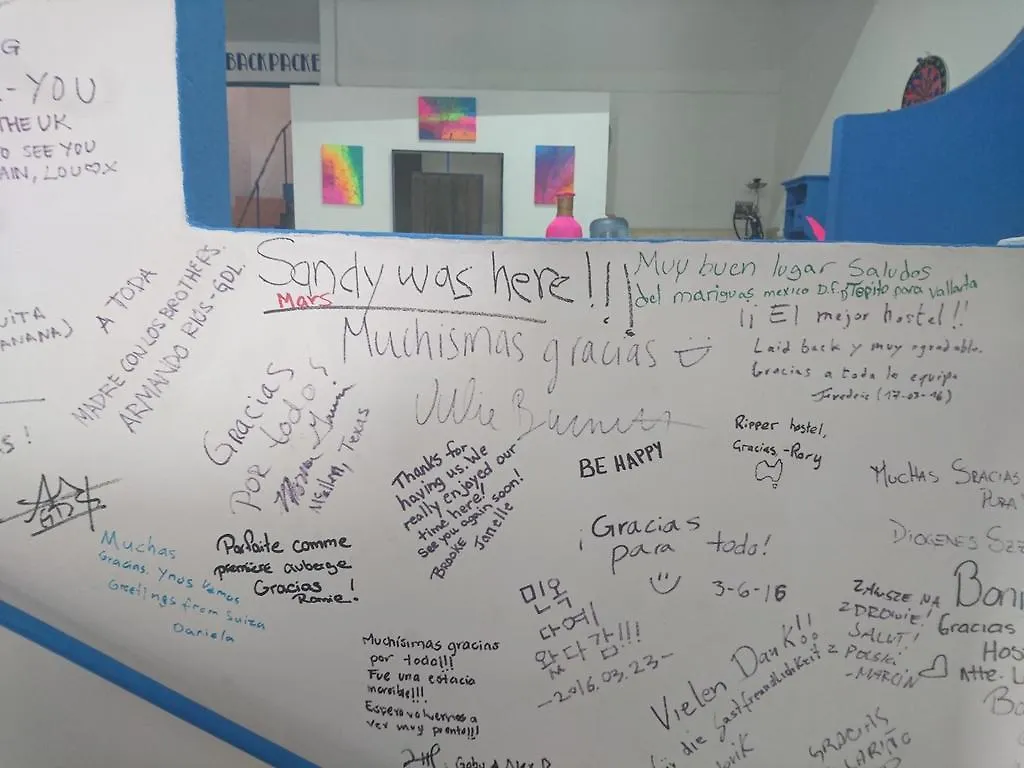 BACKPACKE
G
-YOU
THE UK
O SEE YOU
AIN, LOU♡X
UITA
ANANA)
S!
A TODA
MADRE CON LOS BROTHERS.
ARMANDO RIOS-GDL.
Sandy was here!!!
Mars
Muy buen lugar Saludos
del mariguas, mexico D.F, Tepito para vallarta
Muchismas gracias
¡¡El mejor hostel!!
Laid back y muy agradable.
Gracias a toda la equipa
(17-03-16)
Gracias
Por todo!
Texas
Julie
Thanks for
having us. We
really enjoyed our
time here!
See you again soon!
BROOKE Janelle
BE HAPPY
Ripper hostel,
Gracias, -Rory
MUCHAS GRACIAS
PURA
DIOGENES
Muchas
Gracias. Y nos vemos
Greetings from Suiza
Daniela
Parfaite comme
première auberge
Gracias!
¡Gracias
para todo!
3-6-16
민옥
다예
왔다감!!!
-2016.03.23-
Muchísimas gracias
por todo!!!
Fue una estacia
increible!!!
Espero volvernos a
ver muy pronto!!!
Gaby & Alex D
Vielen Dank!!
für die Gastfreundlichkeit
ZAWSZE NA
ZDROWIE!
SALUT!
Z POLSKI
-MARCIN
Boni
Gracias
Hos
Atte. L
Bo
GRACIAS